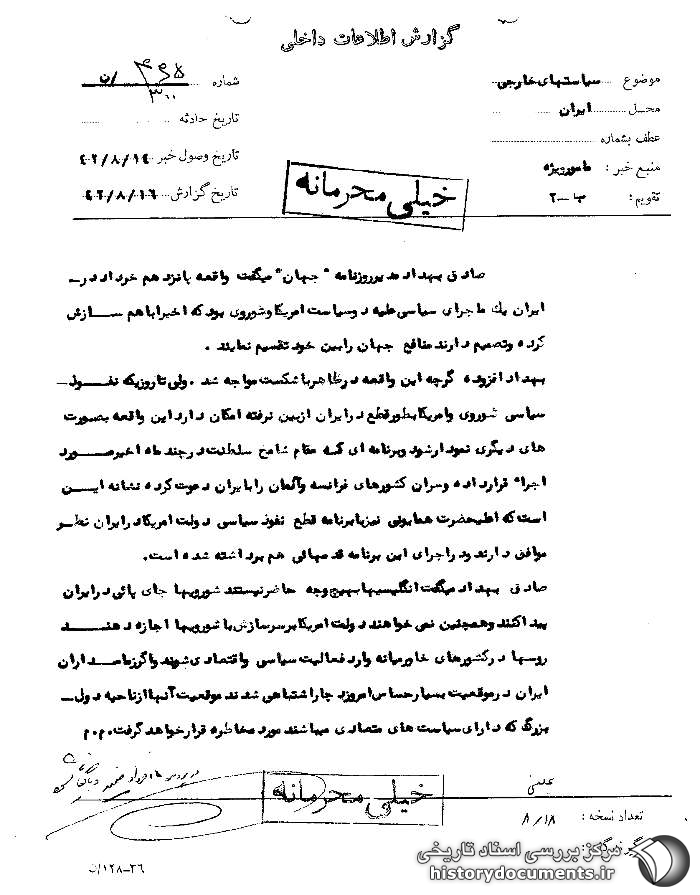 گزارش اطلاعات داخلی
موضوع سیاستهای خارجی
محل ایران
عطف بشماره
منبع خبر : مامور ویژه
تقویم : ب-۲
شماره ۳۰۰/ ن
تاریخ حادثه
تاریخ وصول خبر ۴۲/۸/۱۴
تاریخ گزارش ۴۲/۸/۱۶
خیلی محرمانه
صادق بهداد مدیر روزنامه "جهان" میگفت واقعه پانزدهم خرداد در
ایران یك ماجرای سیاسی علیه دو سیاست امریکا و شوروی بود که اخیرا باهم سازش
کرده و تصمیم دارند منافع جهان را بین خود تقسیم نمایند .
بهداد افزوده گرچه این واقعه در ظاهر با شکست مواجه شد . ولی تا روزیکه نفوذ
سیاسی شوروی و امریکا بطور قطع در ایران از بین نرفته امکان دارد این واقعه بصورت
های دیگری نمودار شود و برنامه ای که مقام شامخ سلطنت در چند ماه اخیر مورد
اجراء قرار داده و سران کشورهای فرانسه و آلمان را بایران دعوت کرده نشانه این
است که اعلیحضرت همایونی نیز با برنامه قطع نفوذ سیاسی دولت امریکا در ایران نظر
موافق دارند و در اجرای این برنامه قدمهائی هم برداشته شده است.
صادق بهداد میگفت انگلیسیها بهیچوجه حاضر نیستند شورویها جای پائی در ایران
پیدا کنند و همچنین نمی خواهند دولت امریکا بر سر سازش با شورویها اجازه دهند
روسها در کشورهای خاورمیانه وارد فعالیت سیاسی و اقتصادی شوند و اگر زمامداران
ایران در موقعیت بسیار حساس امروز دچار اشتباهی شدند موقعیت آنها از ناحیه دول
بزرگ که دارای سیاست های متضادی میباشند مورد مخاطره قرار خواهد گرفت. م.م
خیلی محرمانه
تعداد نسخه : ۸/۱۸
۱۲۸-۳۶/ن
مرکز بررسی اسناد تاریخی
historydocuments.ir